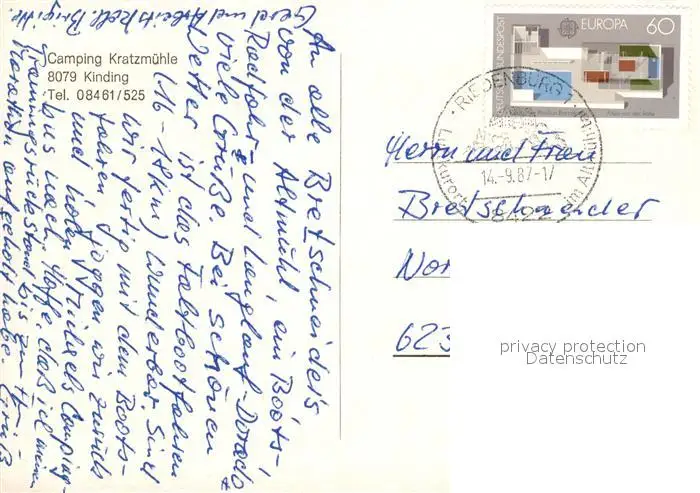 Camping Kratzmühle
8079 Kinding
Tel. 08461/525
An alle Bretschneider's
von der Altmühl ein Boots-,
Radfahr- und Langlauf-Dorado
viele Grüße. Bei schönem
Wetter ist das Faltbootfahren
(16-18km) wunderbar. Sind
wir fertig mit dem Boots-
fahren joggen wir zurück
und holen Michels Camping-
bus nach. Hoffe, daß ich meinen
Trainingsrückstand bis zum
Marathon aufgeholt habe. Gruß
Gerd und
DEUTSCHE BUNDESPOST
EUROPA 60
RIEDENBURG 1
14.-9.87-17
8422
Luftkurort
IM
Herrn und Frau
Bretschneider
Nor
623
privacy protection
Datenschutz